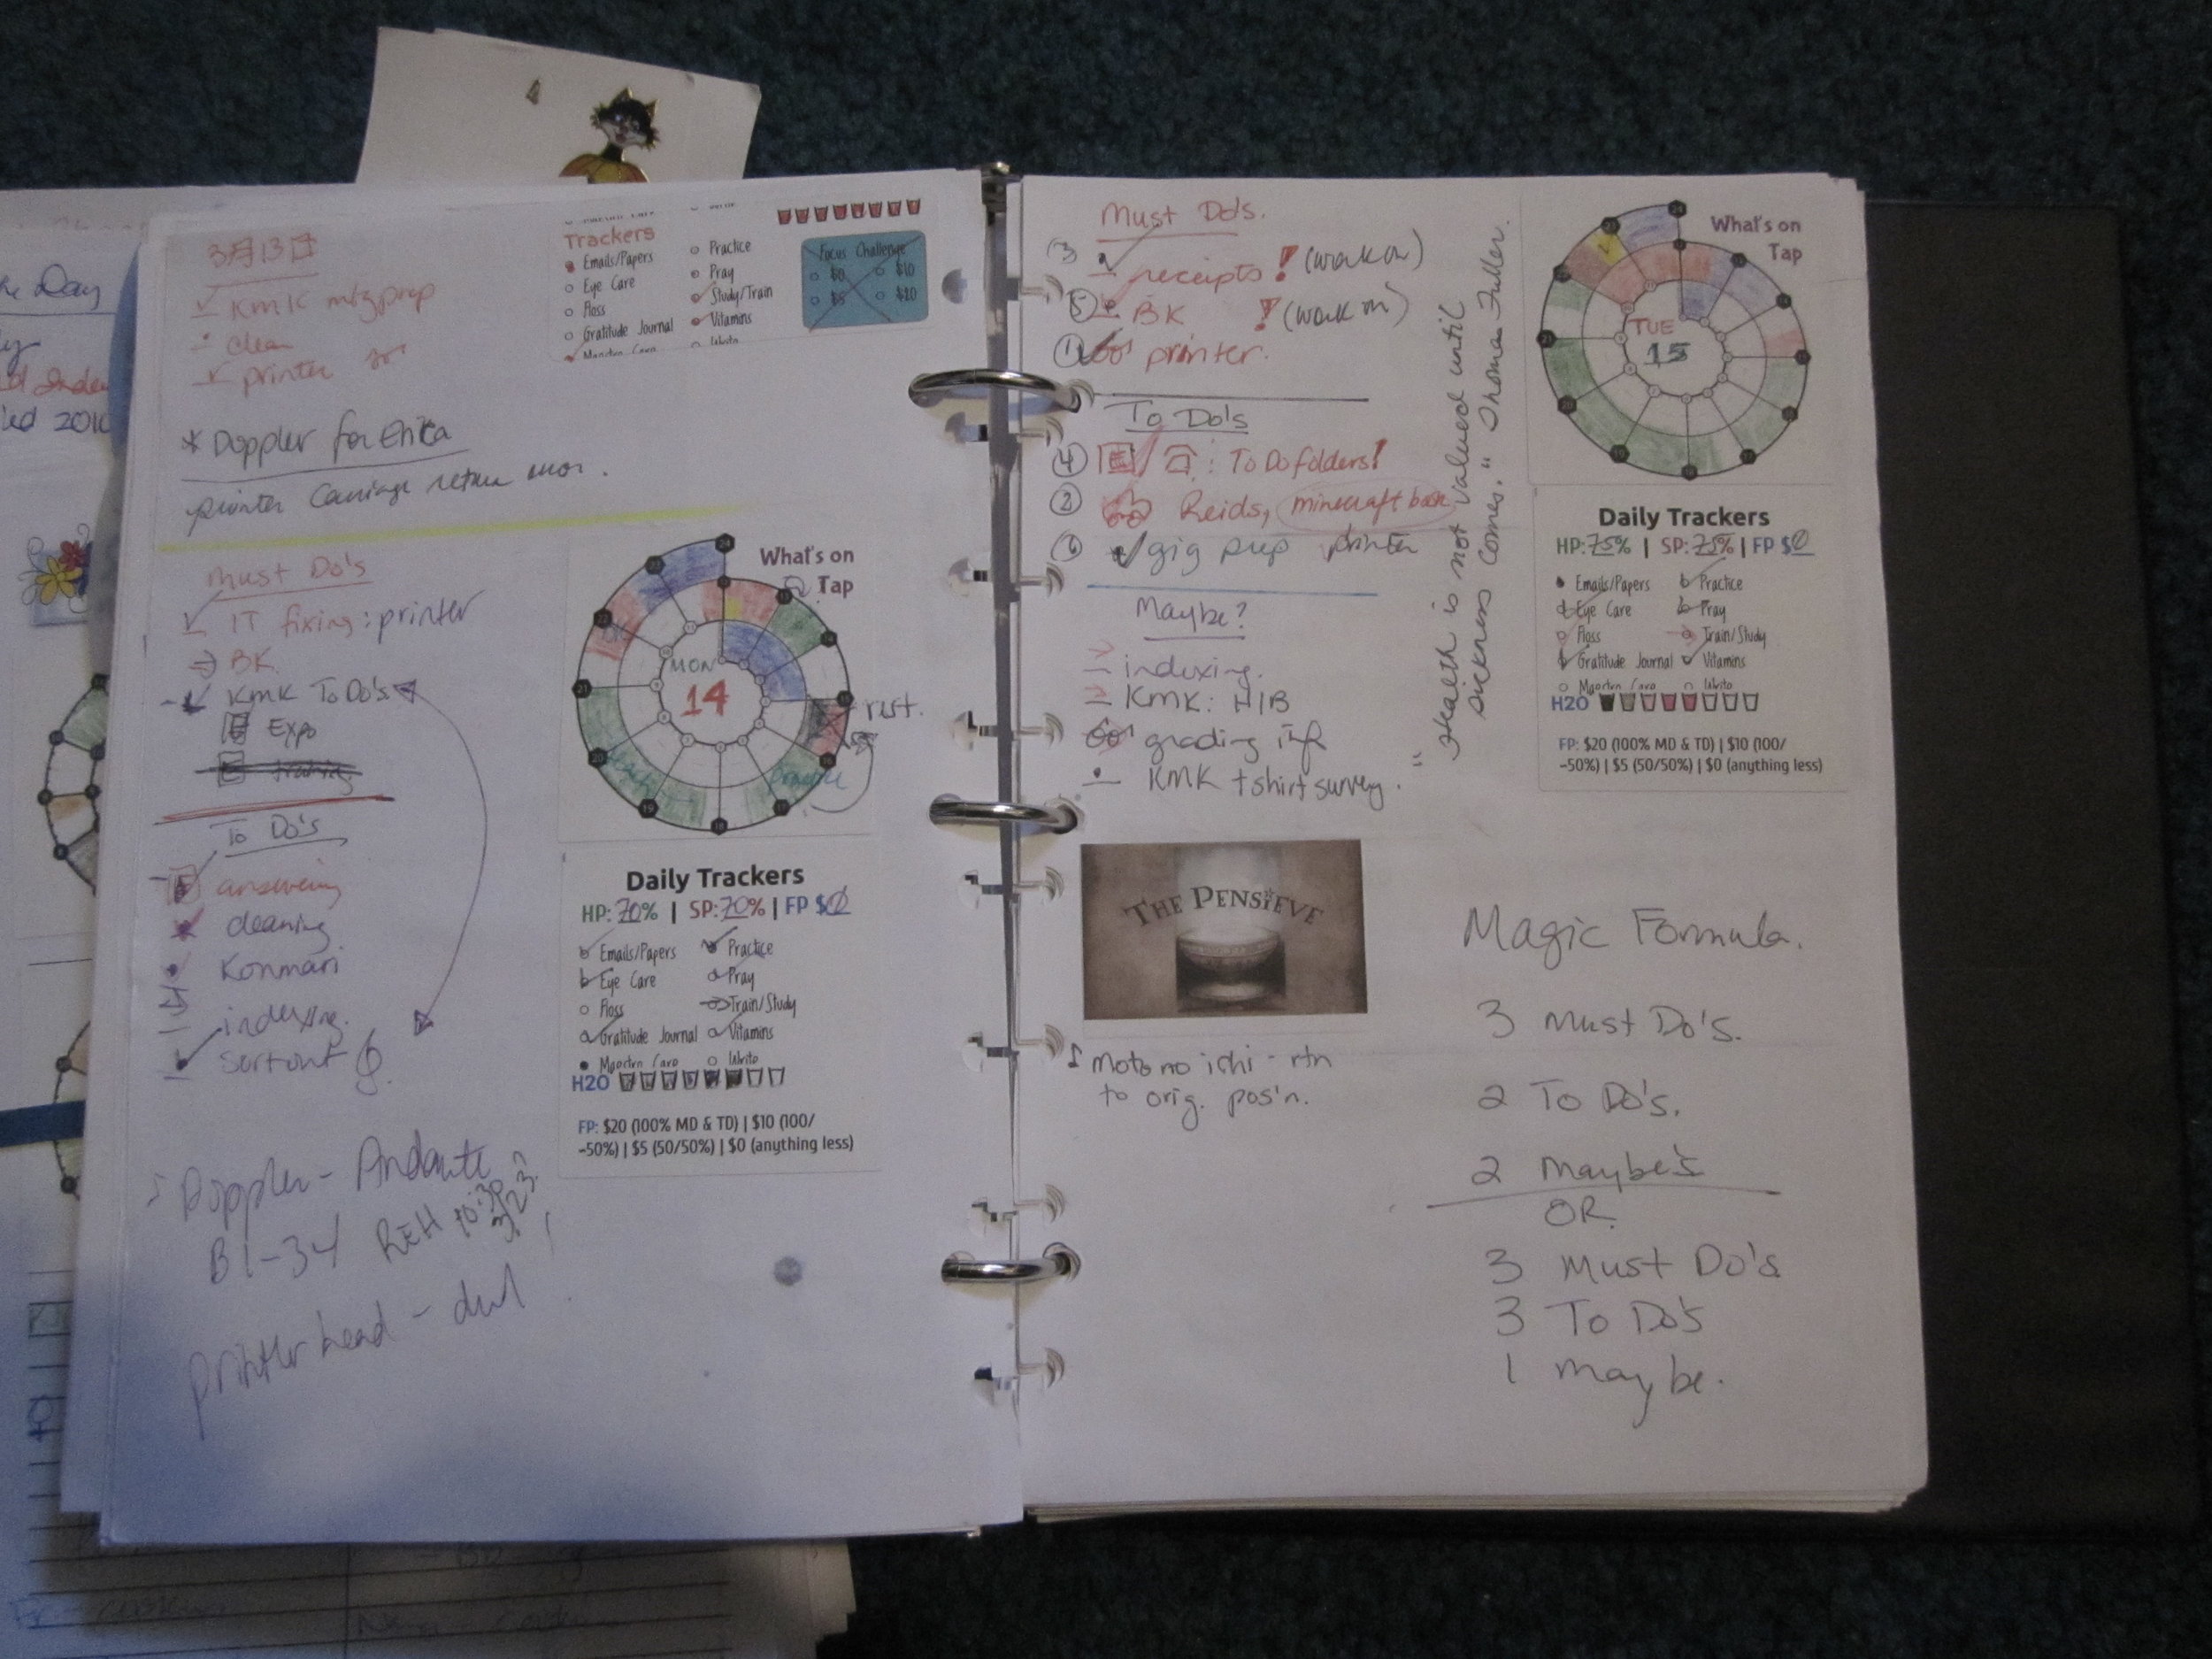 3月13日
KMK mtg prep
clean
printer
Trackers
Emails/Papers
Eye Care
Floss
Gratitude Journal
Practice
Pray
Study/Train
Vitamins
Write
Focus Challenge
$0 $10
$5 $20
* Doppler for Erika
printer Carriage return error.
Must Do's
IT fixing: printer
BK
KMK To Do's
Expo
training
To Do's
answering
cleaning
Konmari
indexing.
sort out
What's on
Tap
MON
14
rest.
practice
Daily Trackers
HP: 70% | SP: 70% | FP $0
Emails/Papers
Eye Care
Floss
Gratitude Journal
Practice
Pray
Train/Study
Vitamins
Write
H2O
FP: $20 (100% MD & TD) | $10 (100/
-50%) | $5 (50/50%) | $0 (anything less)
Doppler - Andante
B1-34 REH 10:30
3/23?
printer head -
Must Do's.
3 receipts ! (work on)
5 BK ! (work on)
1 printer.
To Do's
4 : To Do folders!
2 Reids, minecraft book
6 gig prep printer
Maybe?
indexing.
KMK: H/B
grading info
KMK tshirt survey.
"Health is not valued until
sickness comes." Thomas Fuller.
What's on
Tap
TUE
15
Daily Trackers
HP: 75% | SP: 75% | FP $0
Emails/Papers
Eye Care
Floss
Gratitude Journal
Practice
Pray
Train/Study
Vitamins
Write
H2O
FP: $20 (100% MD & TD) | $10 (100/
-50%) | $5 (50/50%) | $0 (anything less)
THE PENSIEVE
Moto no ichi - rtn
to orig. pos'n.
Magic Formula.
3 Must Do's.
2 To Do's.
2 Maybe's
OR
3 Must Do's
3 To Do's
1 maybe.